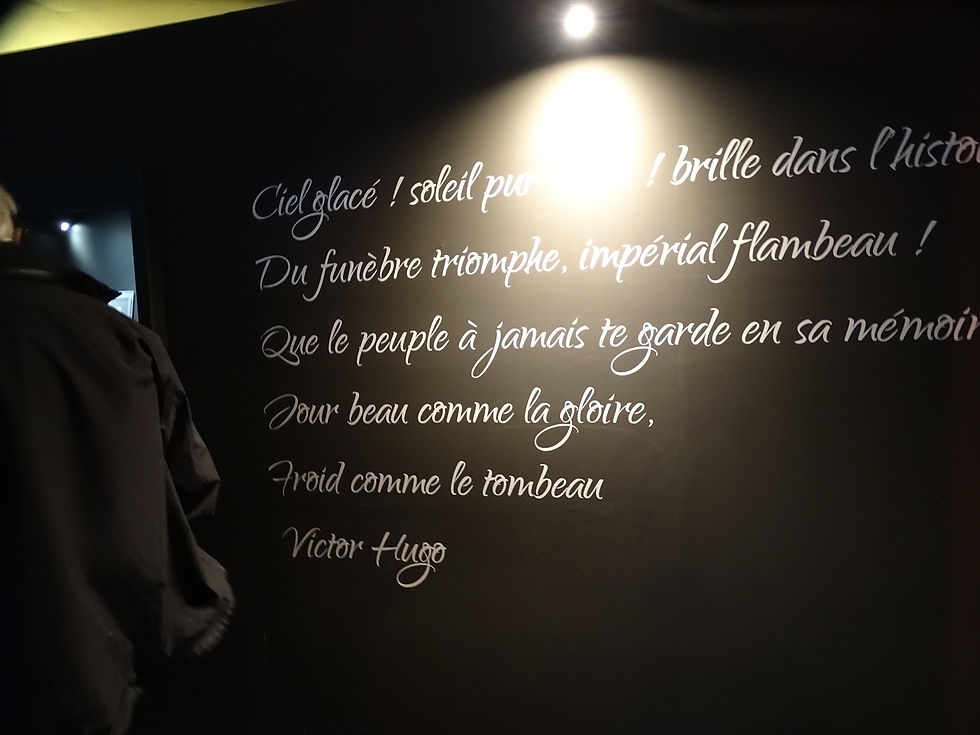 Ciel glacé ! soleil pur ! brille dans l'histo
Du funèbre triomphe, impérial flambeau !
Que le peuple à jamais te garde en sa mémoir
Jour beau comme la gloire,
Froid comme le tombeau
Victor Hugo